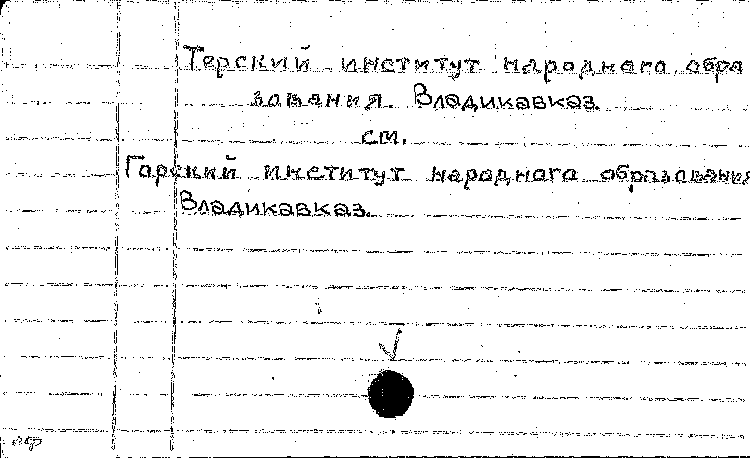 Терский институт народнаго образо
вания. Владикавказ.
см.
Горский институт народнаго образования
Владикавказ.